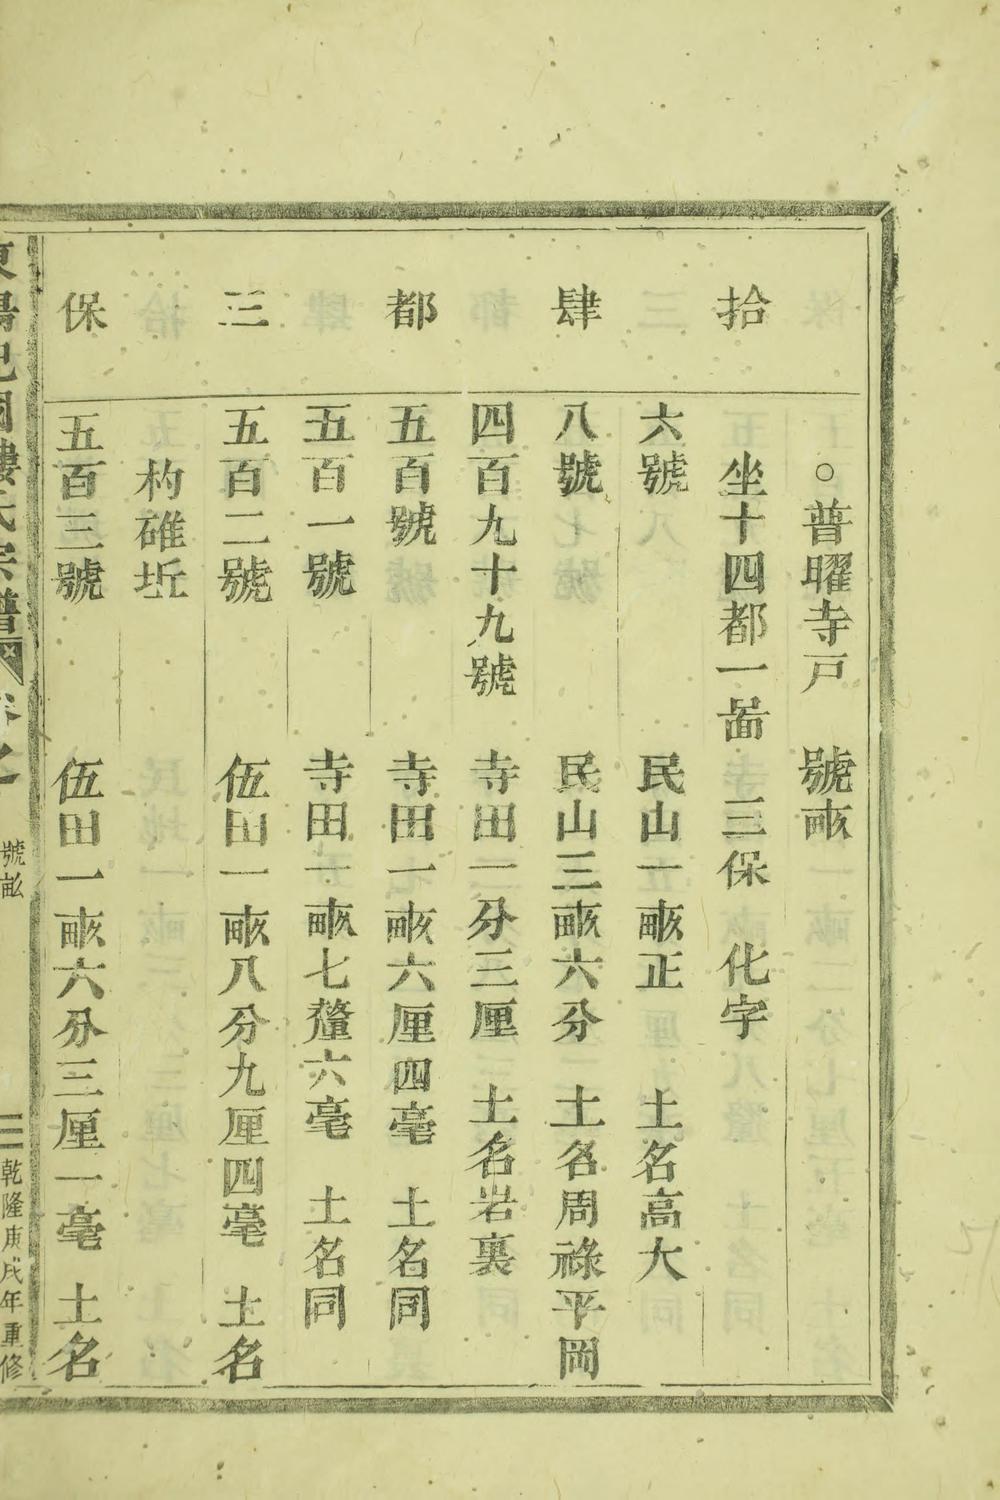 拾 肆 都 三 保
○普曜寺戸 號畝
坐十四都一啚 三保 化字
六號 民山一畝正 土名高大
八號 民山三畝六分 土名周祿平岡
四百九十九號 寺田一分三厘 土名岩裏
五百號 寺田一畝六厘四毫 土名同
五百一號 寺田一畝七釐六毫 土名同
五百二號 伍田一畝八分九厘四毫 土名
杓碓坵
五百三號 伍田一畝六分三厘一毫 土名
東陽杞國樓氏宗譜 卷之 號畝 三 乾隆庚戌年重修